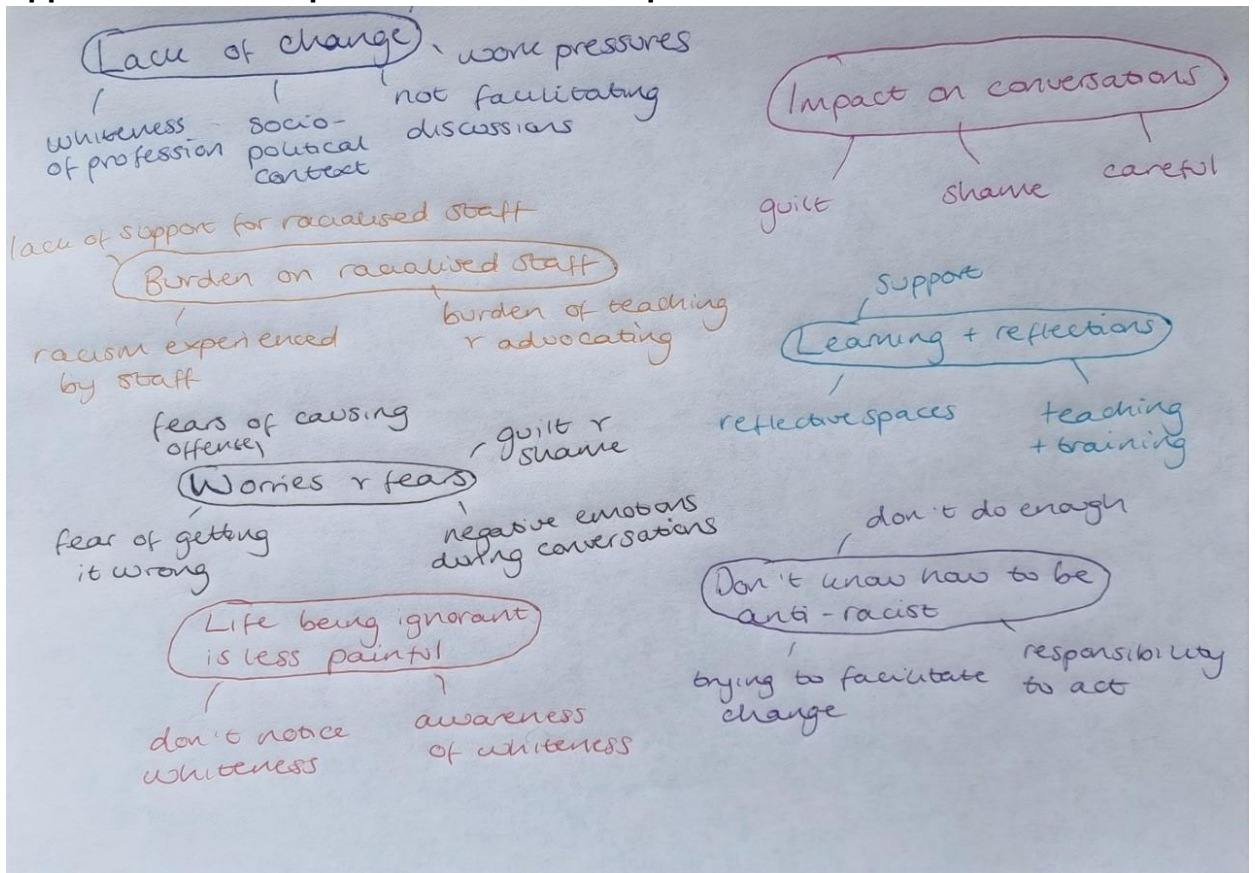 Lack of change
work pressures
not facilitating
discussions
whiteness
of profession
socio-
political
context
Impact on conversations
guilt
shame
careful
lack of support for racialised staff
Burden on racialised staff
racism experienced
by staff
burden of teaching
+ advocating
support
Learning + reflections
reflective spaces
teaching
+ training
fears of causing
offense
guilt +
shame
Worries + fears
fear of getting
it wrong
negative emotions
during conversations
don't do enough
Don't know how to be
anti-racist
trying to facilitate
change
responsibility
to act
Life being ignorant
is less painful
don't notice
whiteness
awareness
of whiteness